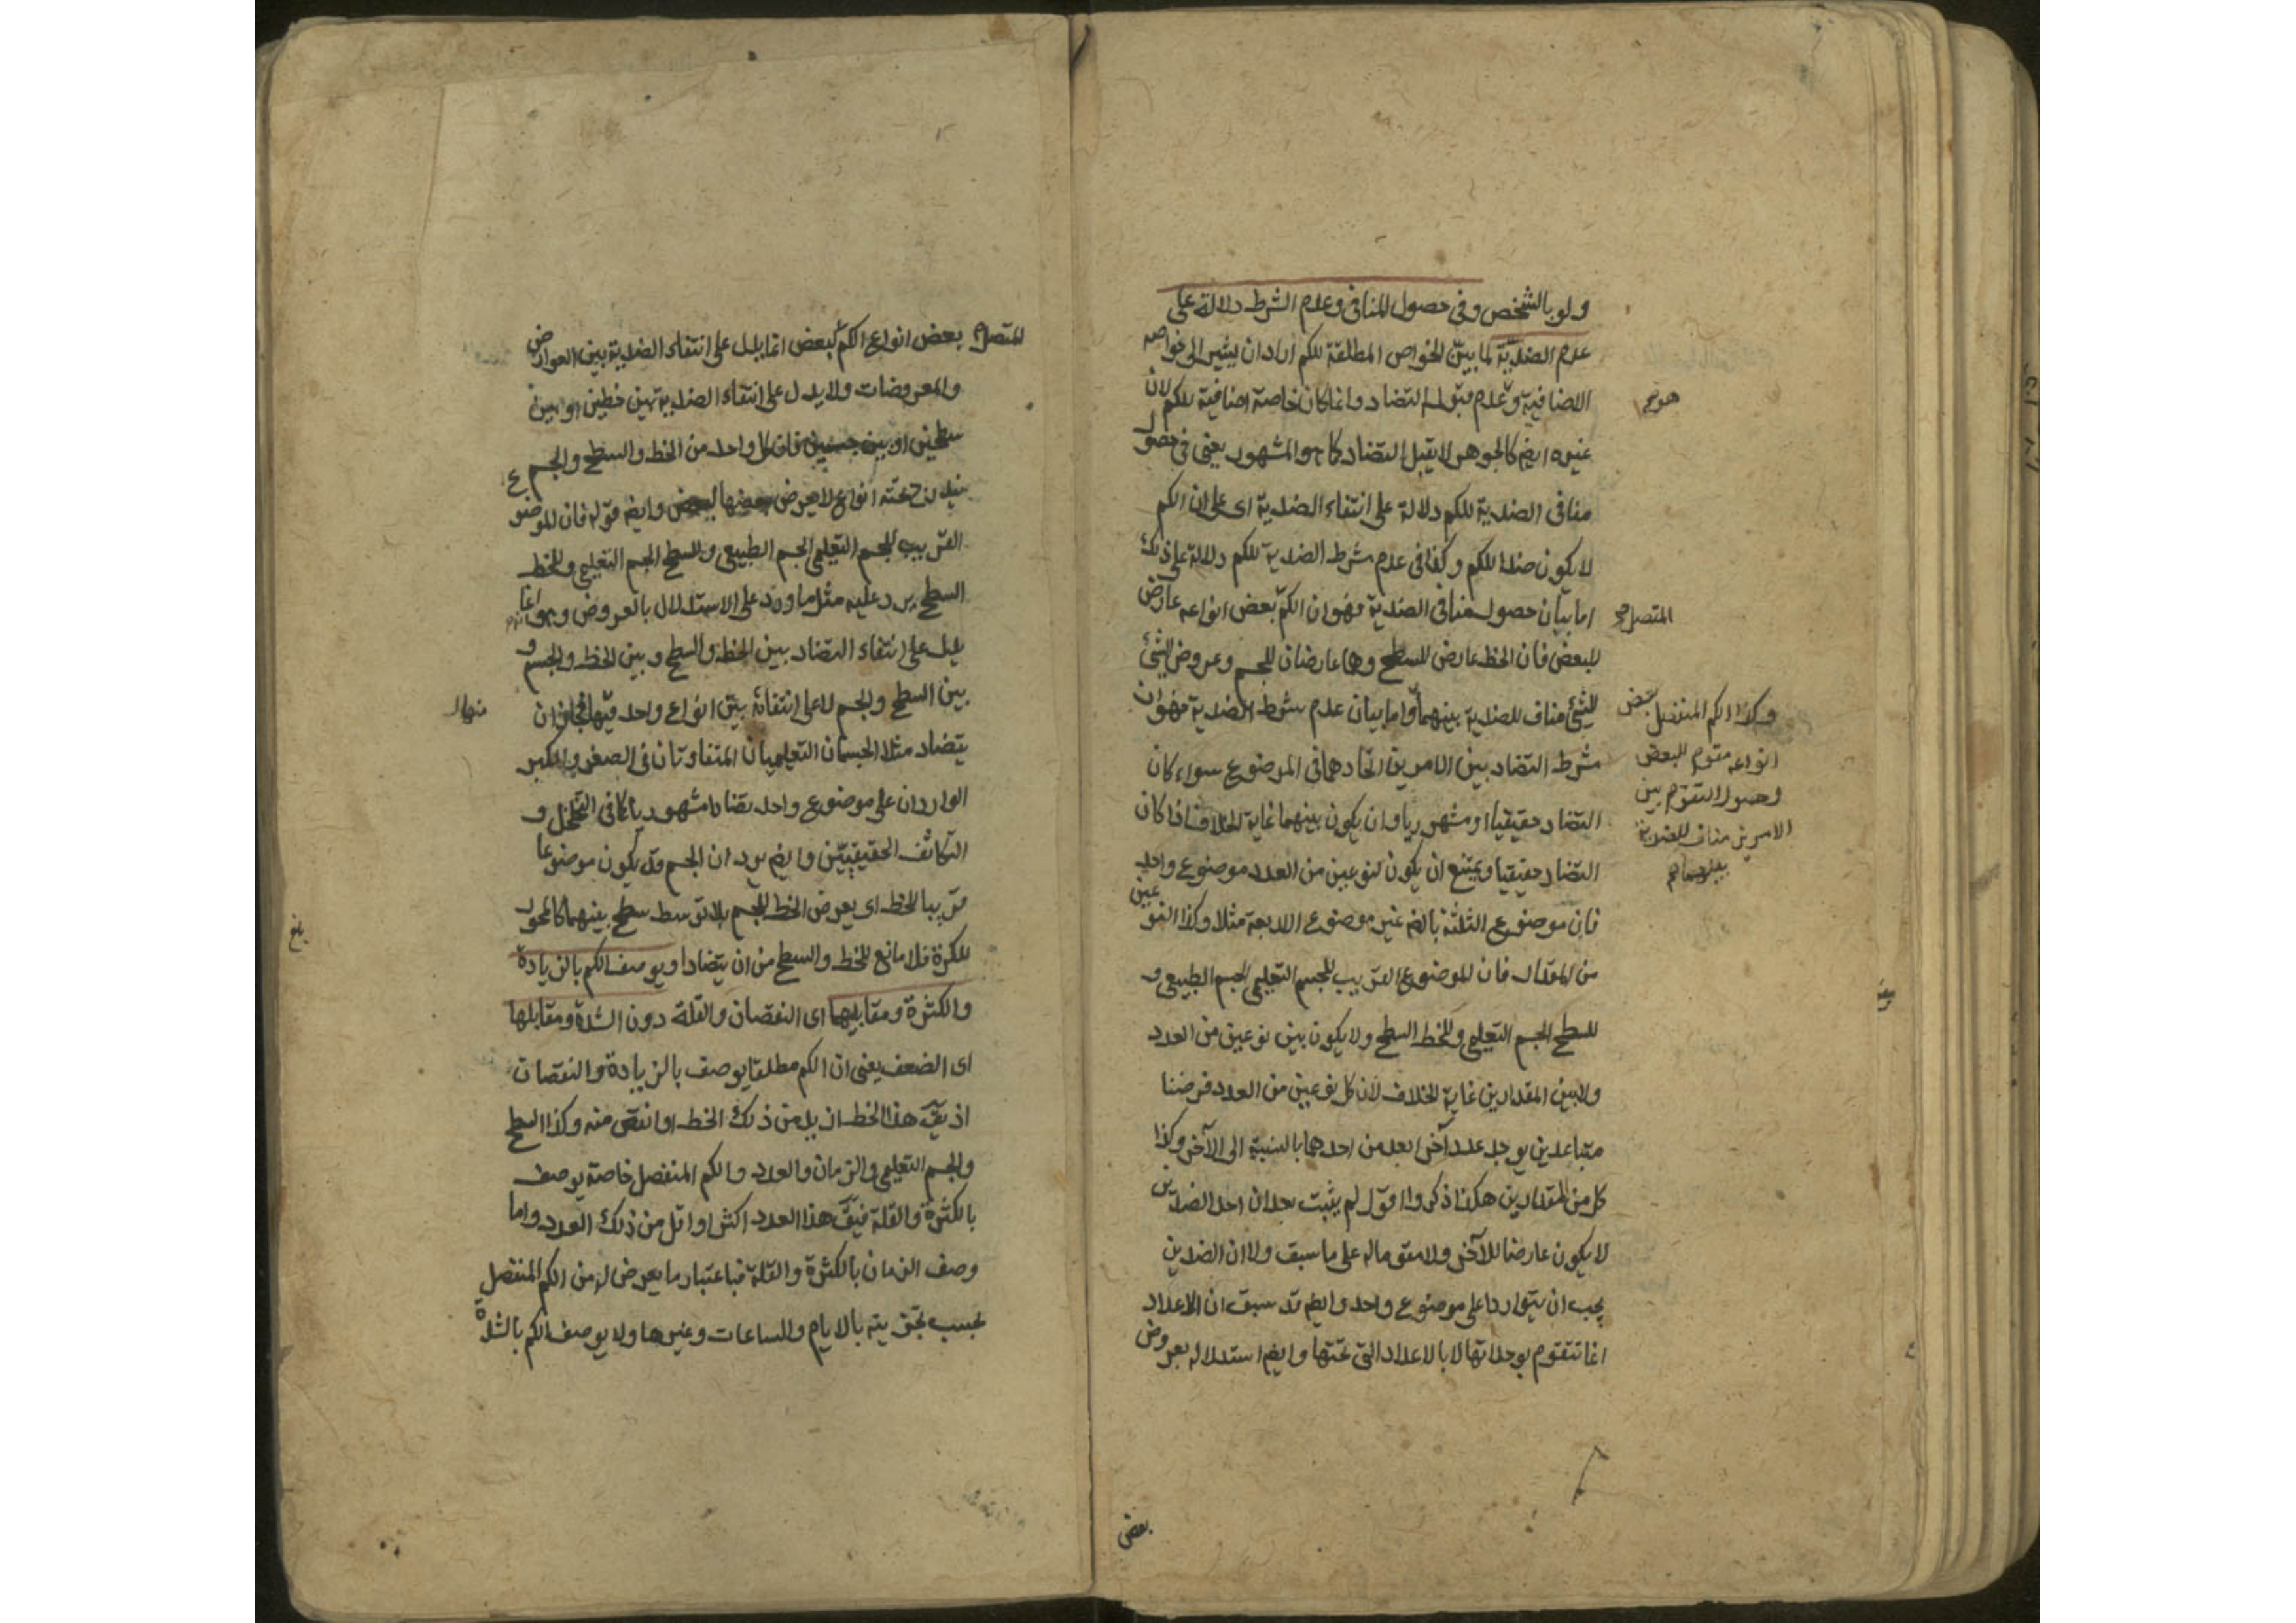 ولو بالشخص وفي حصول المنافي وعدم الشرط دلالة على
عدم الضدية لما بين الخواص المطلقة للكم اراد ان يشير الى خواصه
الاضافية وعدم قبول التضاد وانما كان خاصة اضافية للكم لان
غيره ايضا كالجوهر لا يقبل التضاد كما هو المشهور يعني في حصول
منافي الضدية للكم دلالة على انتفاء الضدية اى على ان الكم
لا يكون ضدا للكم وكذا في عدم شرط الضدية للكم دلالة على ذلك
اما بيان حصول منافي الضدية فهو ان الكم بعض انواعه عارض
للبعض فان الخط عارض للسطح وهما عارضان للجسم وعروض الشئ
للشئ مناف للضدية بينهما واما بيان عدم شرط الضدية فهو ان
شرط التضاد بين الامرين اتحادهما في الموضوع سواء كان
التضاد حقيقيا او مشهوريا وان يكون بينهما غاية الخلاف اذا كان
التضاد حقيقيا ويمتنع ان يكون لنوعين من العدد موضوع واحد
فان موضوع الثلثة بالضم غير موضوع الاربعة مثلا وكذا النوعين
من المقدار فان الموضوع القريب للجسم التعليمي الجسم الطبيعي و
للسطح الجسم التعليمي وللخط السطح ولا يكون بين نوعين من العدد
ولا بين المقدارين غاية الخلاف لان كل نوعين من العدد فرضنا
متباعدين يوجد عدد آخر ابعد من احدهما بالنسبة الى الآخر وكذا
كل من المقدارين هكذا ذكروا اقول لم يثبت بعد ان احد الضدين
لا يكون عارضا للآخر ولا مقوما له على ما سبق ولا ان الضدين
يجب ان يتواردا على موضوع واحد وايضم قد سبق ان الاعداد
انما تتقوم بوحداتها لا بالاعداد التي تحتها وايضم استدلاله بعروض
المتصل
وكذا الكم المنفصل بعض
انواعه مقوم للبعض
وحصول التقوم بين
الامرين مناف للضدية
بينهما
بعض
المتصل بعض انواع الكم لبعض انما يدل على انتفاء الضدية بين العوارض
والمعروضات ولا يدل على انتفاء الضدية بين خطين او بين
سطحين او بين جسمين فان كل واحد من الخط والسطح والجسم
يندرج تحته انواع لا يعرض بعضها لبعض وايضم قوله فان الموضوع
القريب للجسم التعليمي الجسم الطبيعي وللسطح الجسم التعليمي وللخط
السطح يرد عليه مثل ما ورد على الاستدلال بالعروض وهو انما
يدل على انتفاء التضاد بين الخط والسطح وبين الخط والجسم و
بين السطح والجسم لا على انتفائه بين انواع واحد منها فجاز ان
يتضاد مثلا الجسمان التعليميان المتفاوتان في الصغر والكبر
الواردان على موضوع واحد تضادا مشهوريا كما في التخلخل و
التكاثف الحقيقيين وايضم يرد ان الجسم قد يكون موضوعا
قريبا للخط اى يعرض الخط للجسم بلا توسط سطح بينهما كالمحور
للكرة فلا مانع للخط والسطح من ان يتضادا ويوصف الكم بالزيادة
والكثرة ومقابليهما اى النقصان والقلة دون الشدة ومقابلها
اى الضعف يعني ان الكم مطلقا يوصف بالزيادة والنقصان
اذ يقم هذا الخط ازيد من ذلك الخط او انقص منه وكذا السطح
والجسم التعليمي والزمان والعدد والكم المنفصل خاصة يوصف
بالكثرة والقلة فيقم هذا العدد اكثر او اقل من ذلك العدد واما
وصف الزمان بالكثرة والقلة فباعتبار ما يعرض له من الكم المنفصل
بحسب تجزيته بالايام والساعات وغيرها ولا يوصف الكم بالشدة